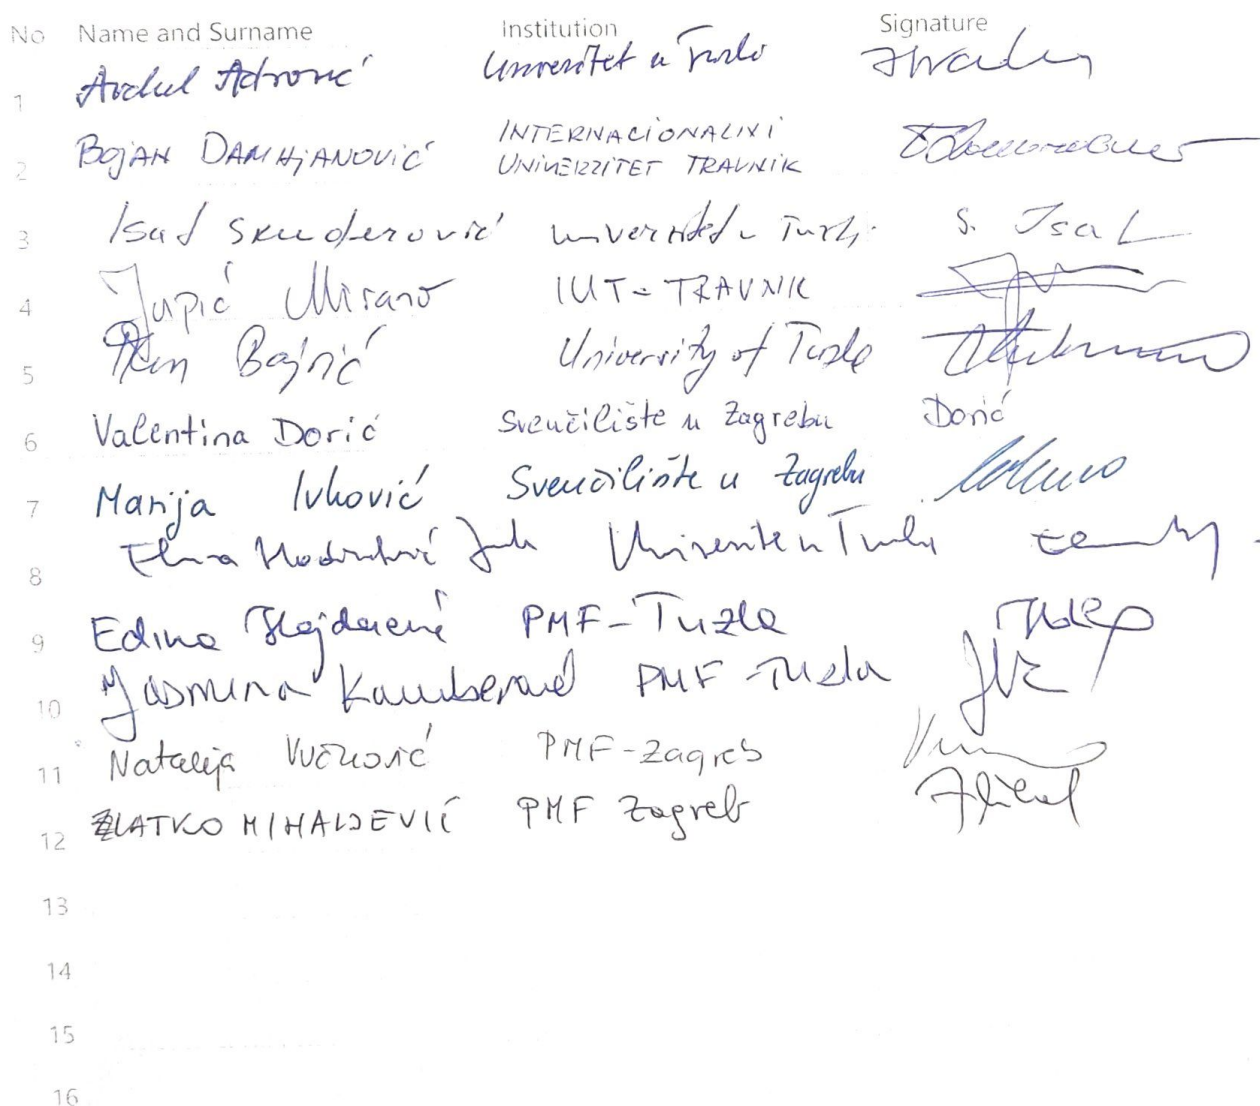 No Name and Surname Institution Signature
1 Avdul Adrović Univerzitet u Tuzli
2 BOJAN DAMHJANOVIĆ INTERNACIONALNI
UNIVERZITET TRAVNIK
3 Isad Skenderović Univerzitet u Tuzli S. Isa
4 Jupić Mirano IUT - TRAVNIK
5 Bajrić University of Tuzla
6 Valentina Dorić Sveučilište u Zagrebu Dorić
7 Marija Ivković Sveučilište u Zagrebu
8 u Tuzli
9 Edina Hajdarević PMF - Tuzla
10 Jasmina Kamberović PMF - Tuzla
11 Natalija Vučković PMF - Zagreb
12 ZLATKO MIHALJEVIĆ PMF Zagreb
13
14
15
16